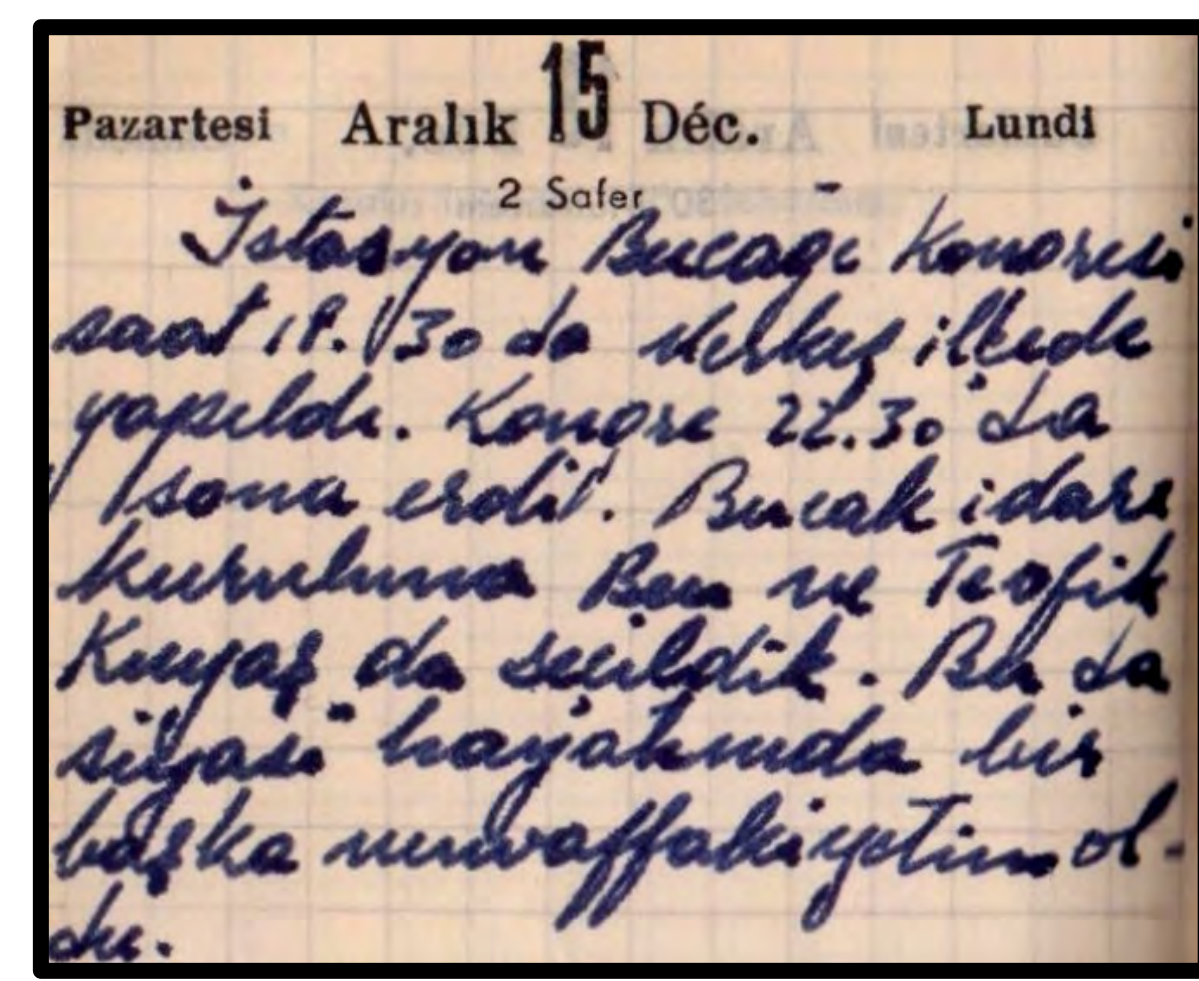 Pazartesi Aralık 15 Déc. Lundi
2 Safer
İstasyon Bucağı Kongresi
saat 18.30 da Merkez ilçede
yapıldı. Kongre 22.30 da
sona erdi. Bucak idare
kuruluna Ben ve Tevfik
da seçildik. Bu da
siyasi hayatımda bir
başka muvaffakiyetim ol-
du.